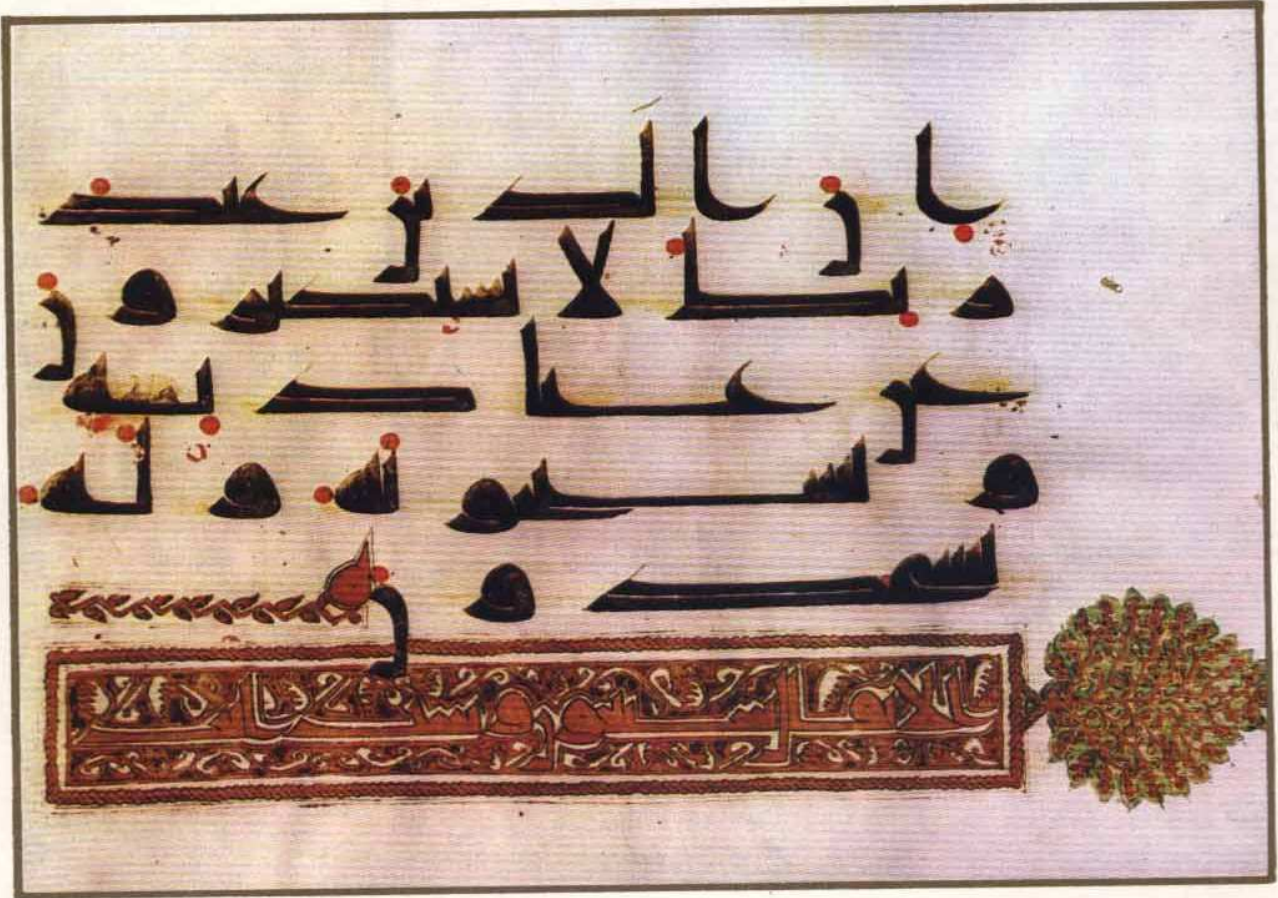 ان الذين عند
ربك لا يستكبرون
عن عبادته
ويسبحونه وله
يسجدون
الانفال سبعون